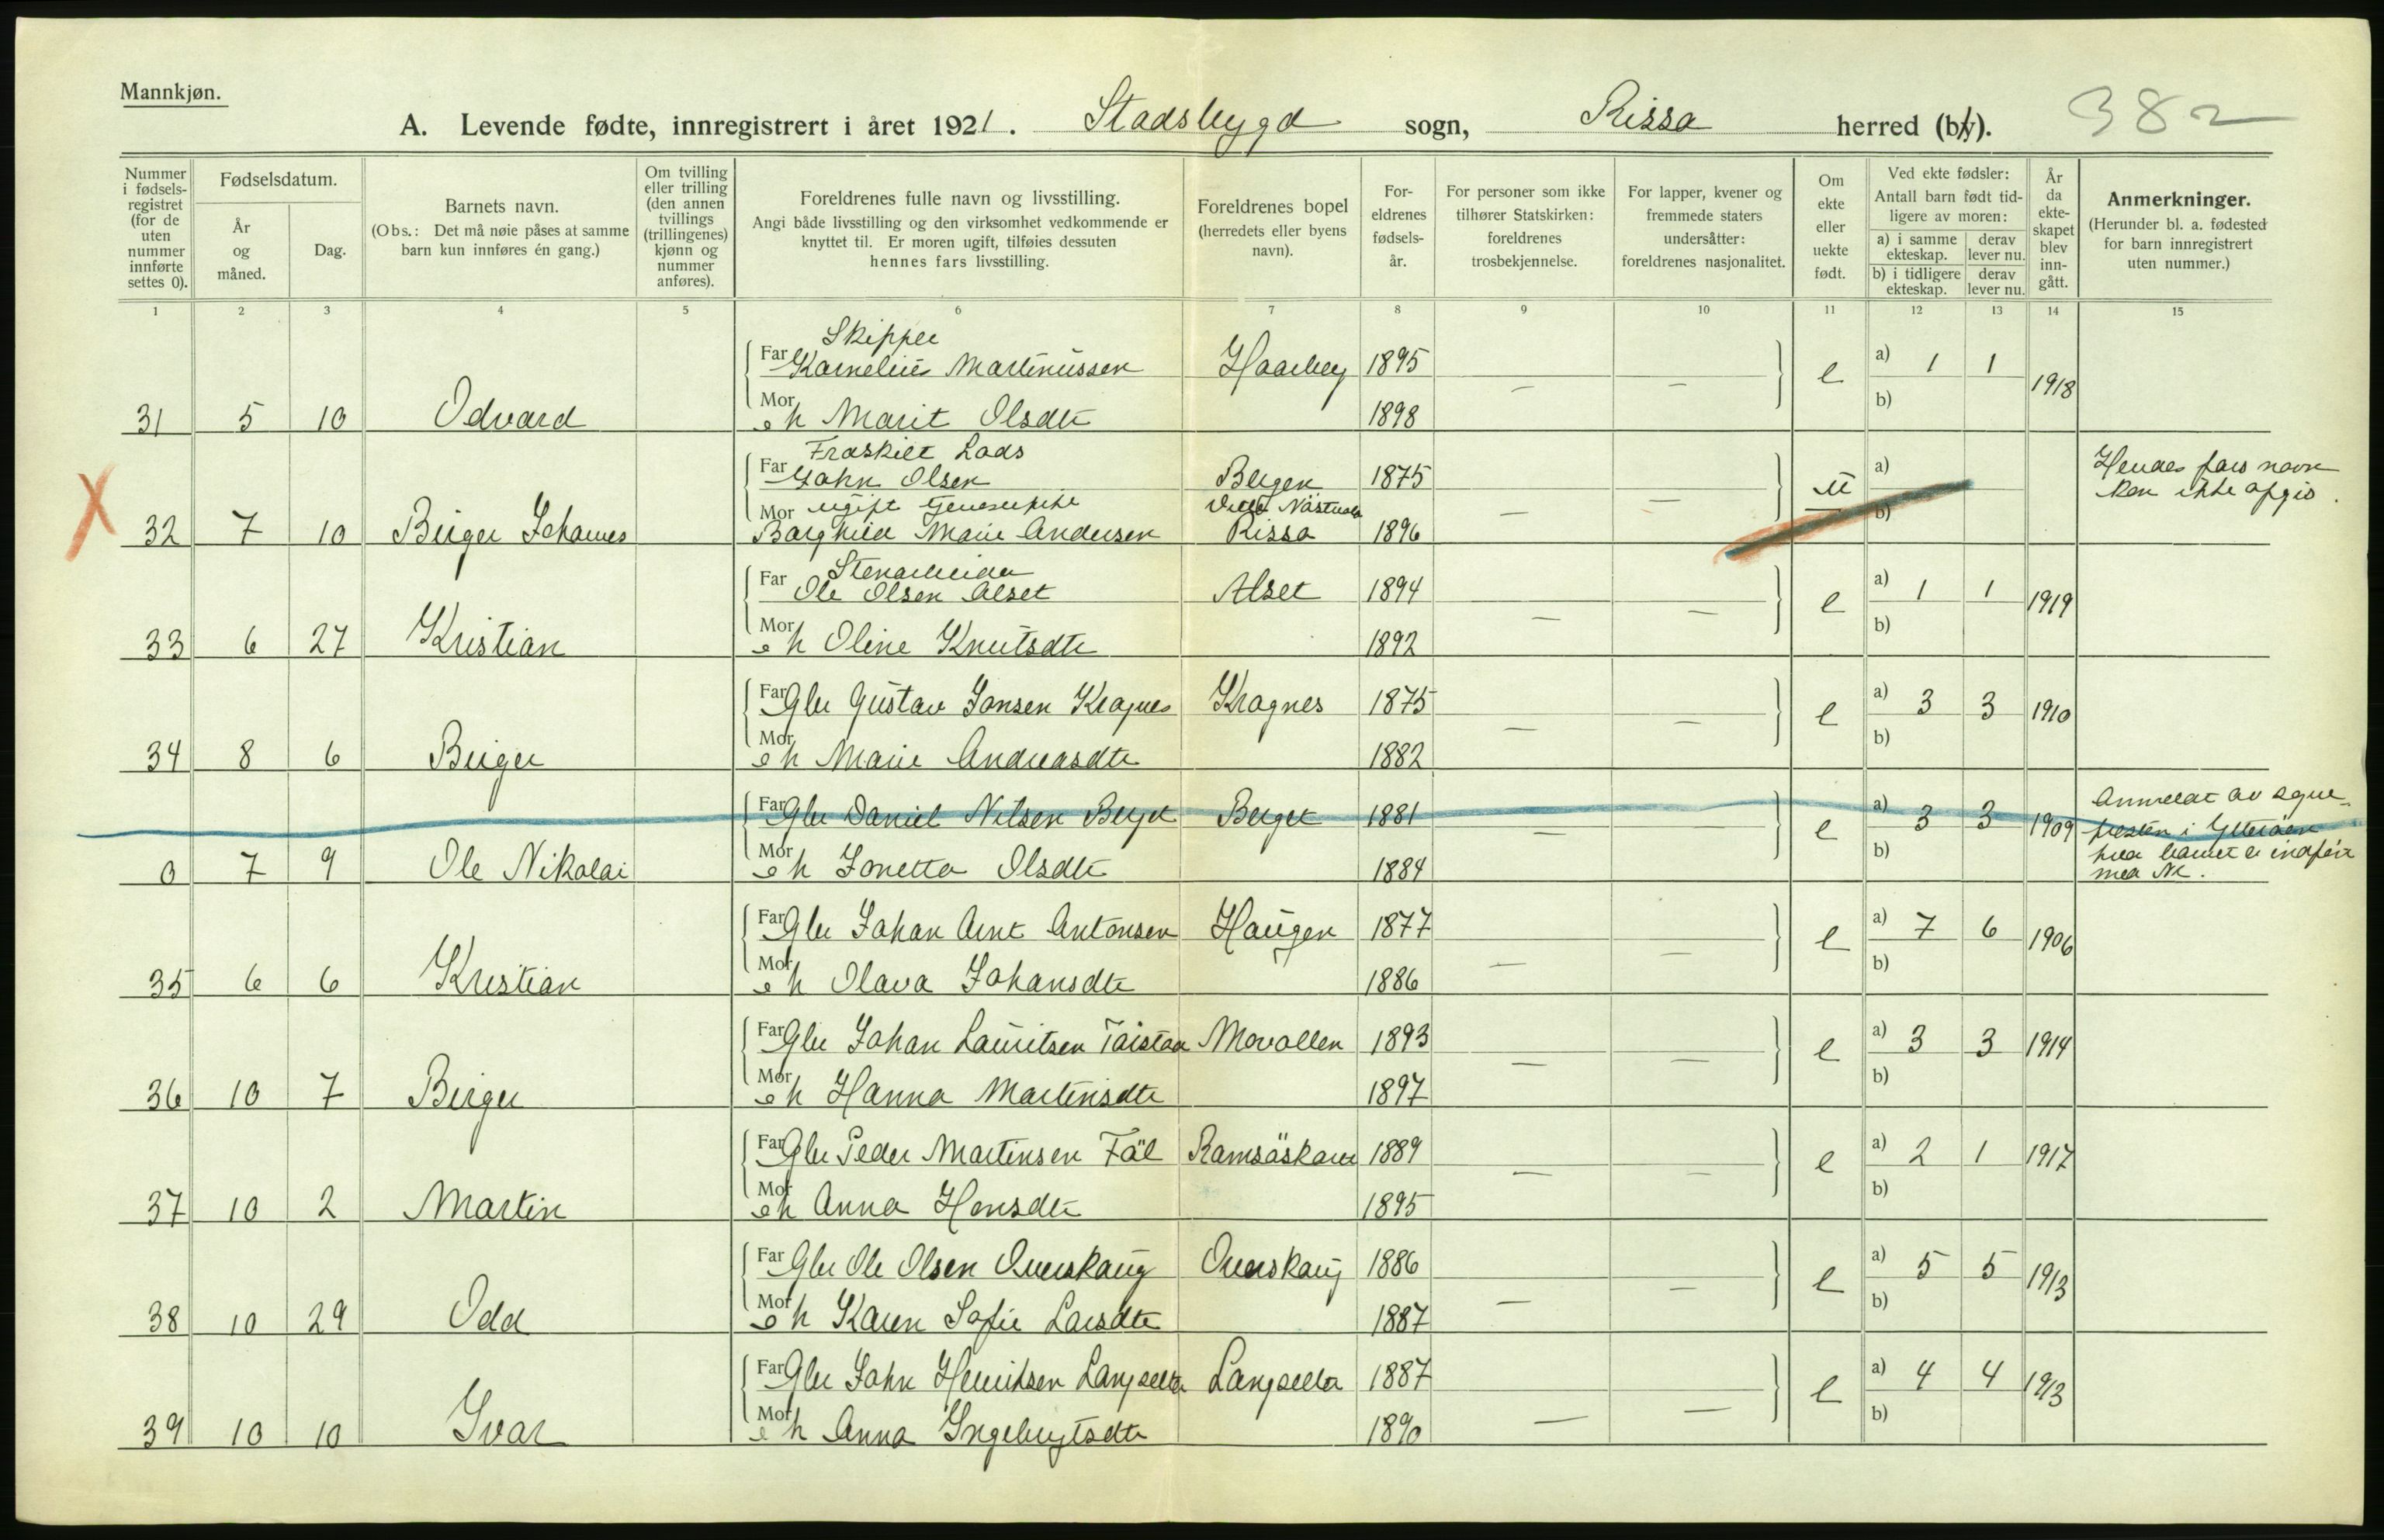 Mannkjøn.
A. Levende fødte, innregistrert i året 1921. Stadsbygd sogn, Rissa herred (by). 382
Nummer i fødsels- registret (for de uten nummer innførte settes 0).
Fødselsdatum.
År og måned.
Dag.
Barnets navn.
(Obs.: Det må nøie påses at samme barn kun innføres én gang.)
Om tvilling eller trilling (den annen tvillings (trillingenes) kjønn og nummer anføres).
Foreldrenes fulle navn og livsstilling.
Angi både livsstilling og den virksomhet vedkommende er knyttet til. Er moren ugift, tilføies dessuten hennes fars livsstilling.
Foreldrenes bopel (herredets eller byens navn).
For- eldrenes fødsels- år.
For personer som ikke tilhører Statskirken: foreldrenes trosbekjennelse.
For lapper, kvener og fremmede staters undersåtter: foreldrenes nasjonalitet.
Om ekte eller uekte født.
Ved ekte fødsler: Antall barn født tid- ligere av moren:
a) i samme ekteskap. derav lever nu.
b) i tidligere ekteskap. derav lever nu.
År da ekte- skapet blev inn- gått.
Anmerkninger.
(Herunder bl. a. fødested for barn innregistrert uten nummer.)
1 2 3 4 5 6 7 8 9 10 11 12 13 14 15
Skipper
Far Kornelius Martinussen Haarberg 1895 — e a) 1 1 1918
31 5 10 Odvard Mor e h Marit Olsdtr 1898 b)
Fraskilt Lods
Far John Olsen Bergen 1875 — u a) Hendes fars navn
Mor ugift kan ikke opgis.
X 32 7 10 Birger Johannes Borghild Marie Andersen Rissa 1896 b)
Stenarbeider
Far Ole Olsen Alset Alset 1894 — e a) 1 1 1919
33 6 27 Kristian Mor e h Oline Knutsdtr 1892 b)
Far Gbr Gustav Jonsen Kragnes Kragnes 1875 — e a) 3 3 1910
34 8 6 Birger Mor e h Marie Andreasdtr 1882 b)
Far Gbr Daniel Nilsen Berget Berget 1881 — e a) 3 3 1909 Anmeldt av sogne-
presten i Ytterøen
0 7 9 Ole Nikolai Mor e h Jonetta Olsdtr 1884 b) hvor barnet er indført
med Nr.
Far Gbr Johan Arnt Antonsen Haugen 1877 — e a) 7 6 1906
35 6 6 Kristian Mor e h Olava Johansdtr 1886 b)
Far Gbr Johan Lauritsen Movollen 1893 — e a) 3 3 1914
36 10 7 Birger Mor e h Hanna Martinsdtr 1897 b)
Far Gbr Peder Martinsen 1889 — e a) 2 1 1917
37 10 2 Martin Mor e h Anna Hansdtr 1895 b)
Far Gbr Ole Olsen Overskaug Overskaug 1886 — e a) 5 5 1913
38 10 29 Odd Mor e h Karen Sofie Larsdtr 1887 b)
Far Gbr John Henriksen Langsetta Langsetta 1887 — e a) 4 4 1913
39 10 10 Ivar Mor e h Anna Ingebrigtsdtr 1890 b)